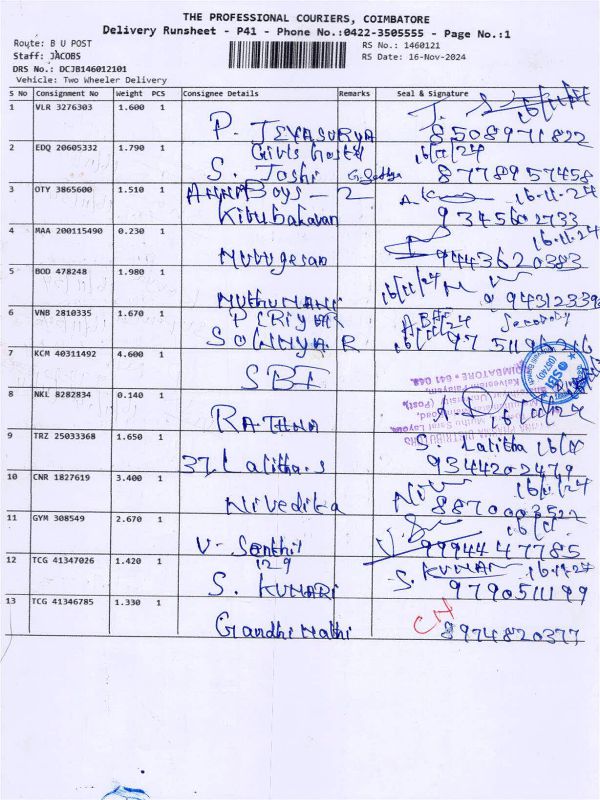 THE PROFESSIONAL COURIERS, COIMBATORE
Delivery Runsheet - P41 - Phone No.:0422-3505555 - Page No.:1
Route: B U POST
RS No.: 1460121
Staff: JACOBS
RS Date: 16-Nov-2024
DRS No.: DCJB146012101
Vehicle: Two Wheeler Delivery
S No Consignment No Weight PCS Consignee Details Remarks Seal & Signature
1 VLR 3276303 1.600 1
P. JEYASURYA 8508971822
2 EDQ 20605332 1.790 1 Girls Hostel 16/11/24
S. Joshi 8778957458
3 OTY 3865600 1.510 1 Boys - 2 16-11-24
Kirubakaran 9345602733
4 MAA 200115490 0.230 1 16.11.24
Murugesan 9443620383
5 BOD 478248 1.980 1 16/11/24
MUTHUMANI
6 VNB 2810335 1.670 1 PERIYAR
SOWNYA R
7 KCM 40311492 4.600 1
SBI
8 NKL 8282834 0.140 1 16/11/24
RATHNA
9 TRZ 25033368 1.650 1 S. Lalitha
37. Lalitha.s 9344202479
10 CNR 1827619 3.400 1 16/11/24
Nivedita 8870003522
11 GYM 308549 2.670 1
V- Senthil 9994447785
12 TCG 41347026 1.420 1 129 S. KUMARI 16.11.24
S. KUMARI 9790511199
13 TCG 41346785 1.330 1
Gandhi Mathi CH 8974820377